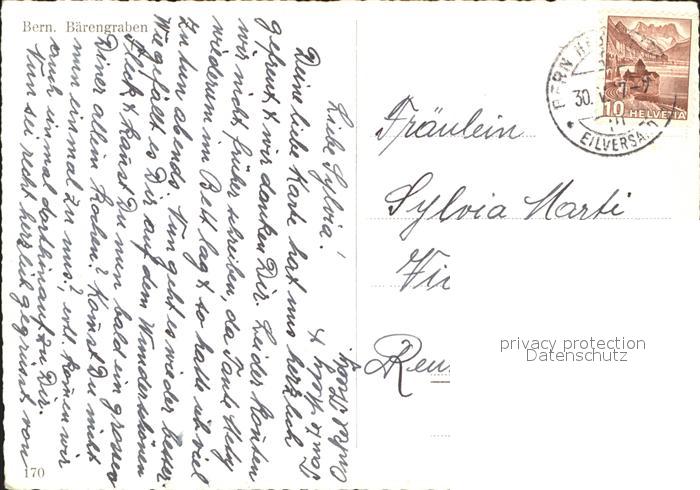 Bern. Bärengraben
Liebe Sylvia!
Deine liebe Karte hat uns herzlich
gefreut & wir danken Dir. Leider konnten
wir nicht früher schreiben, da Tante Hedy
wiederum im Bett lag & so hatte ich viel
zu tun abends. Nun geht es wieder besser.
Wie gefällt es Dir auf dem wunderschönen
Fleck & kannst Du nun bald ein grosses
Diner allein kochen? Kommst Du nicht
nun einmal zu uns?, evtl. kommen wir
auch einmal dorthinauf zu Dir.
Nun sei recht herzlich gegrüsst von
Hedy
170
Fräulein
Sylvia Marti
BERN
30.
7-
EILVERSAND
10 HELVETIA
privacy protection
Datenschutz